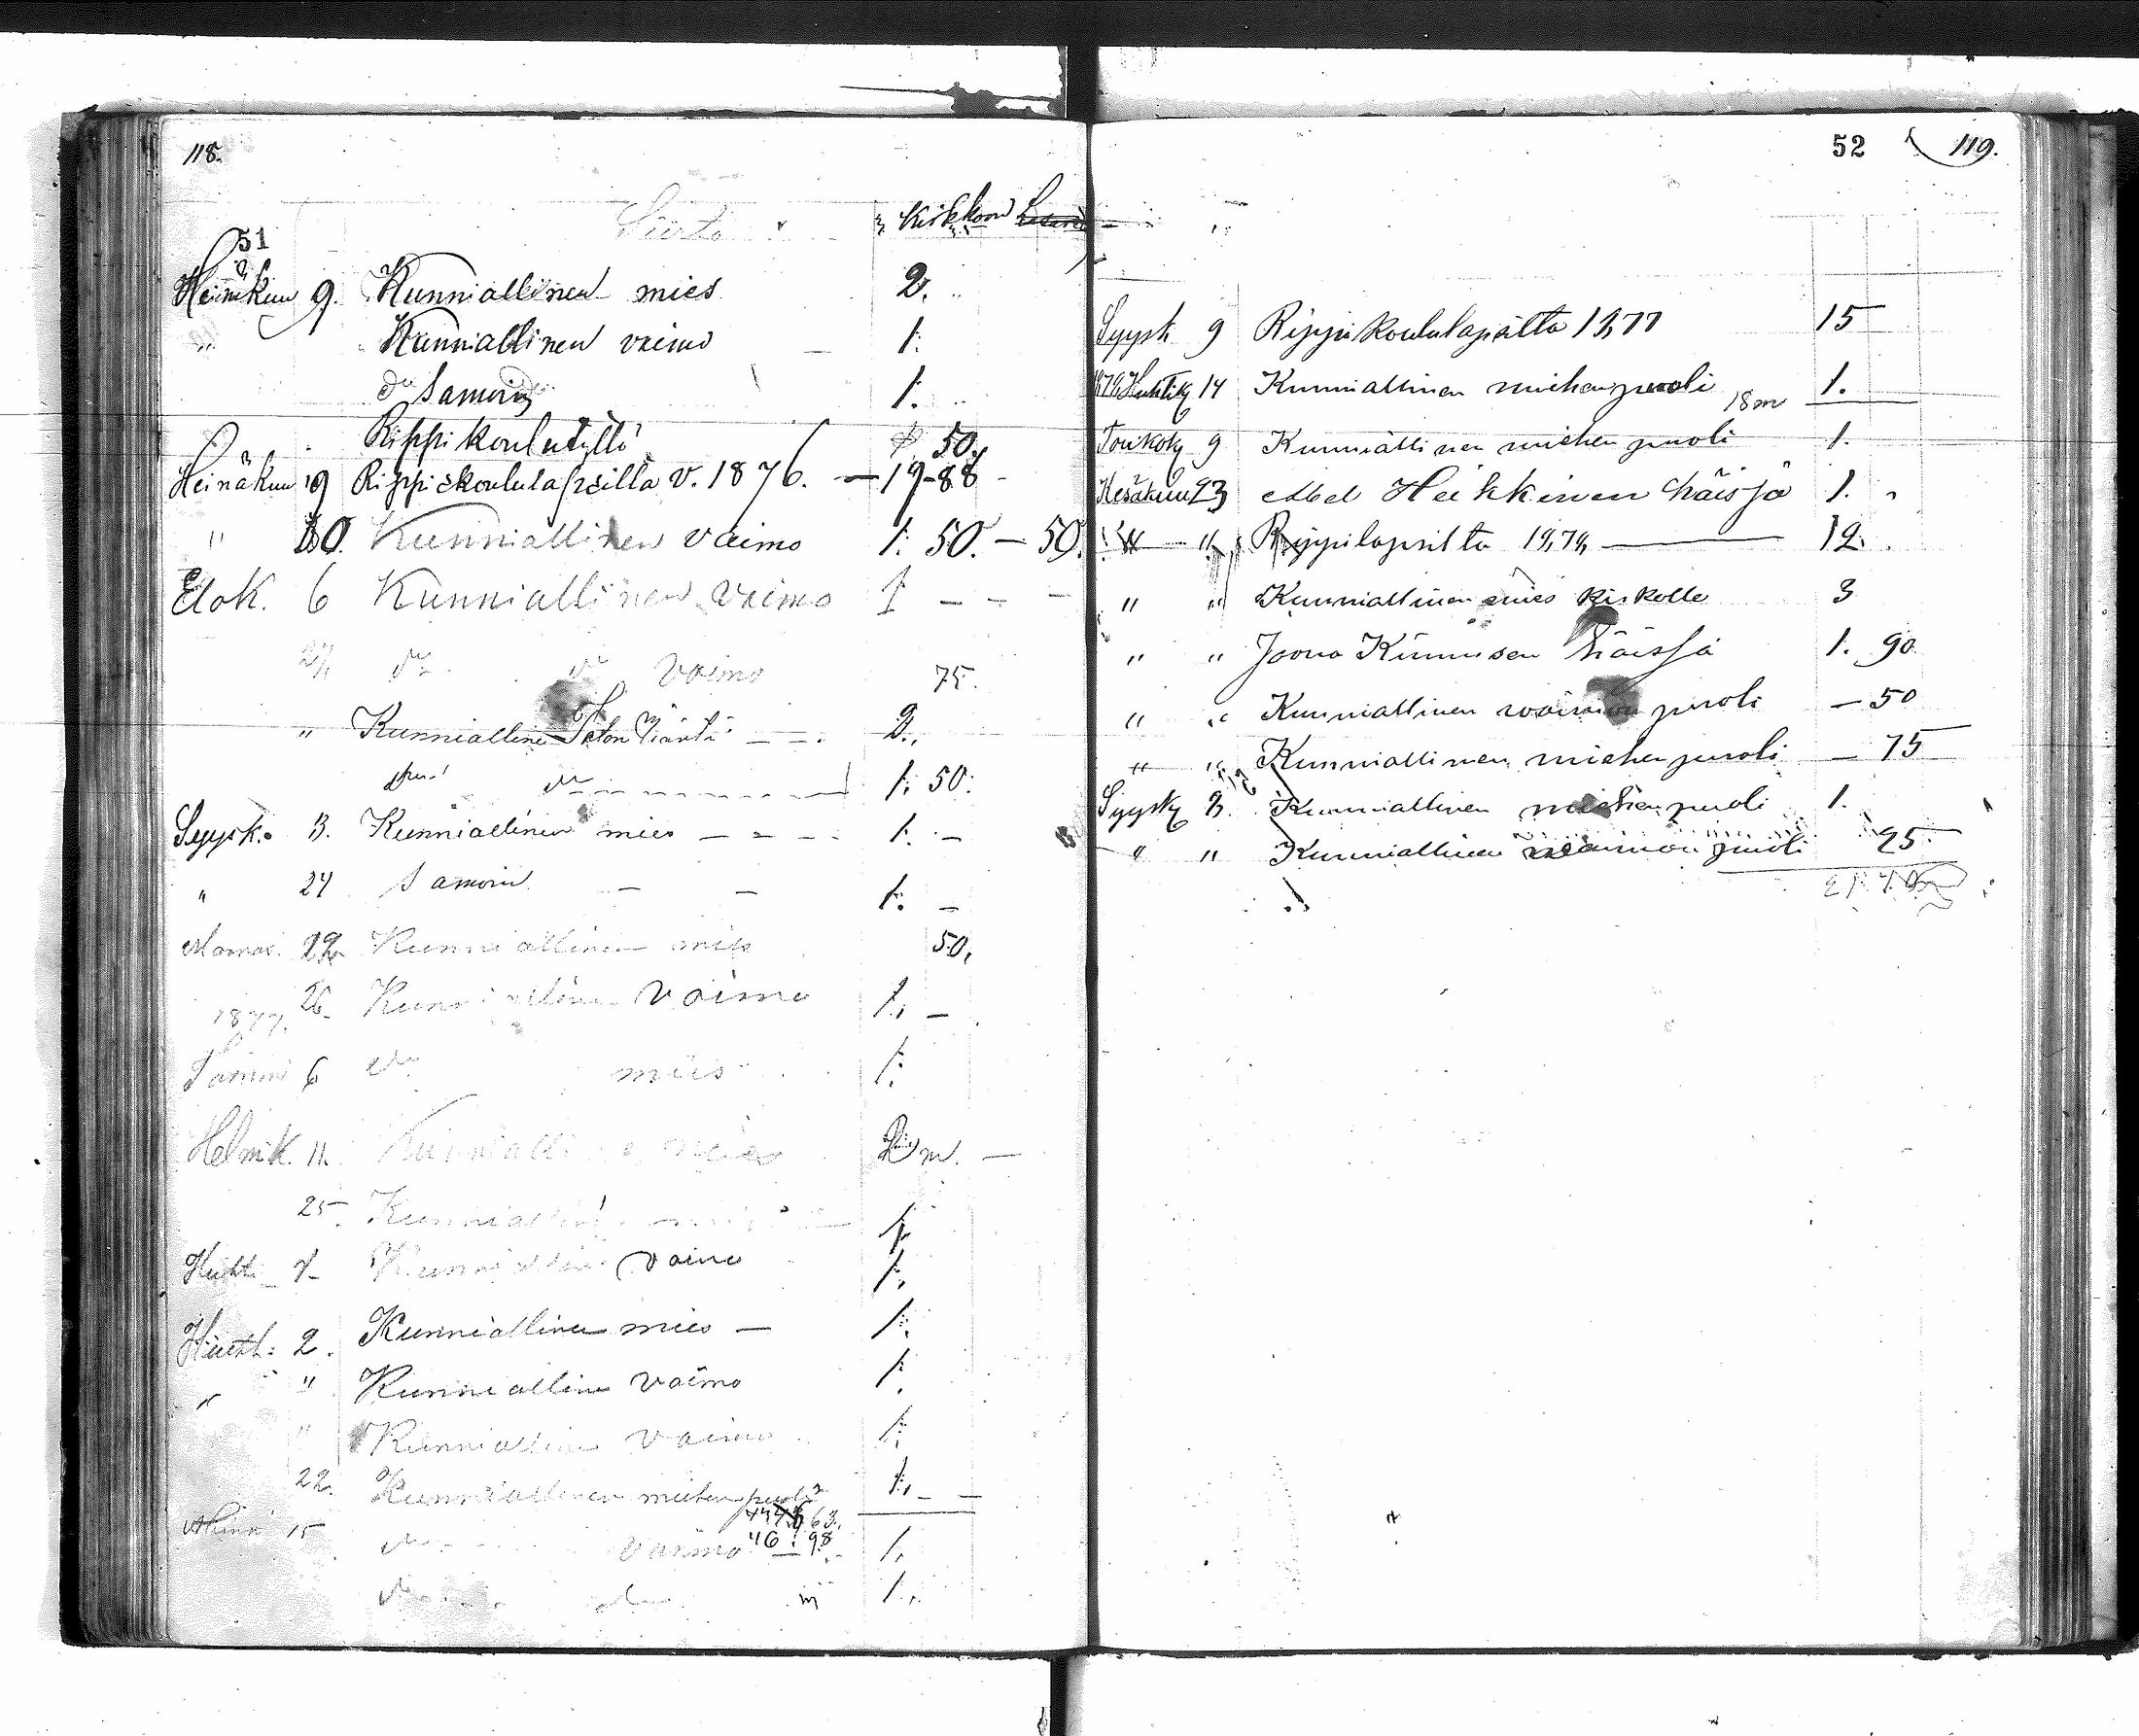 118.
Siirto Kirkkoon
51
Heinäkuu 9. Kunniallinen mies 2.
" Kunniallinen vaimo 1.
do Samoin 1.
Rippikoulutyttö 50.
Heinäkuu 19 Rippikoululapsilla v. 1876. — 19-88
" 30. Kunniallinen vaimo 1: 50. — 50.
Elok. 6 Kunniallinen vaimo 1 - - -
27 do do vaimo 75.
" Kunnialline 2.
do 1: 50:
Syysk. 3. Kunniallinen mies - - - 1. -
" 24 Samoin - - 1: -
Marras. 22 Kunniallinen mies 50.
26. Kunniallinen Vaimo 1. -
1877.
Tammi 6 do mies 1:
Helmik. 11. Kunniallinen 2 m. —
25 Kunniallinen 1
Huhti 1 Kunniallinen vaimo 1.
Huhti: 2. Kunniallinen mies — 1.
" " Kunniallinen vaimo 1.
" Kunniallinen vaimo 1.
22. Kunniallinen miehenpuoli 1. - -
63.
46 : 98
15 do vaimo 1.
do do 1.
52 119.
Syysk 9 Rippikoululapsilta 1877 15
Huhtik 14 Kunniallinen miehenpuoli 18m 1.
Toukok 9 Kunniallinen miehenpuoli 1.
Kesäkuu 23 Abel Heikkinen häissä 1.
" " Rippilapsilta 1878 — 12.
" " Kunniallinen mies kirkolle 3
" " Joona Kinnusen häissä 1. 90
" " Kunniallinen vaimon puoli — 50
" " Kunniallinen miehenpuoli — 75
Syysk 3. Kunniallinen miehenpuoli 1.
" " Kunniallinen vaimon puoli 25.